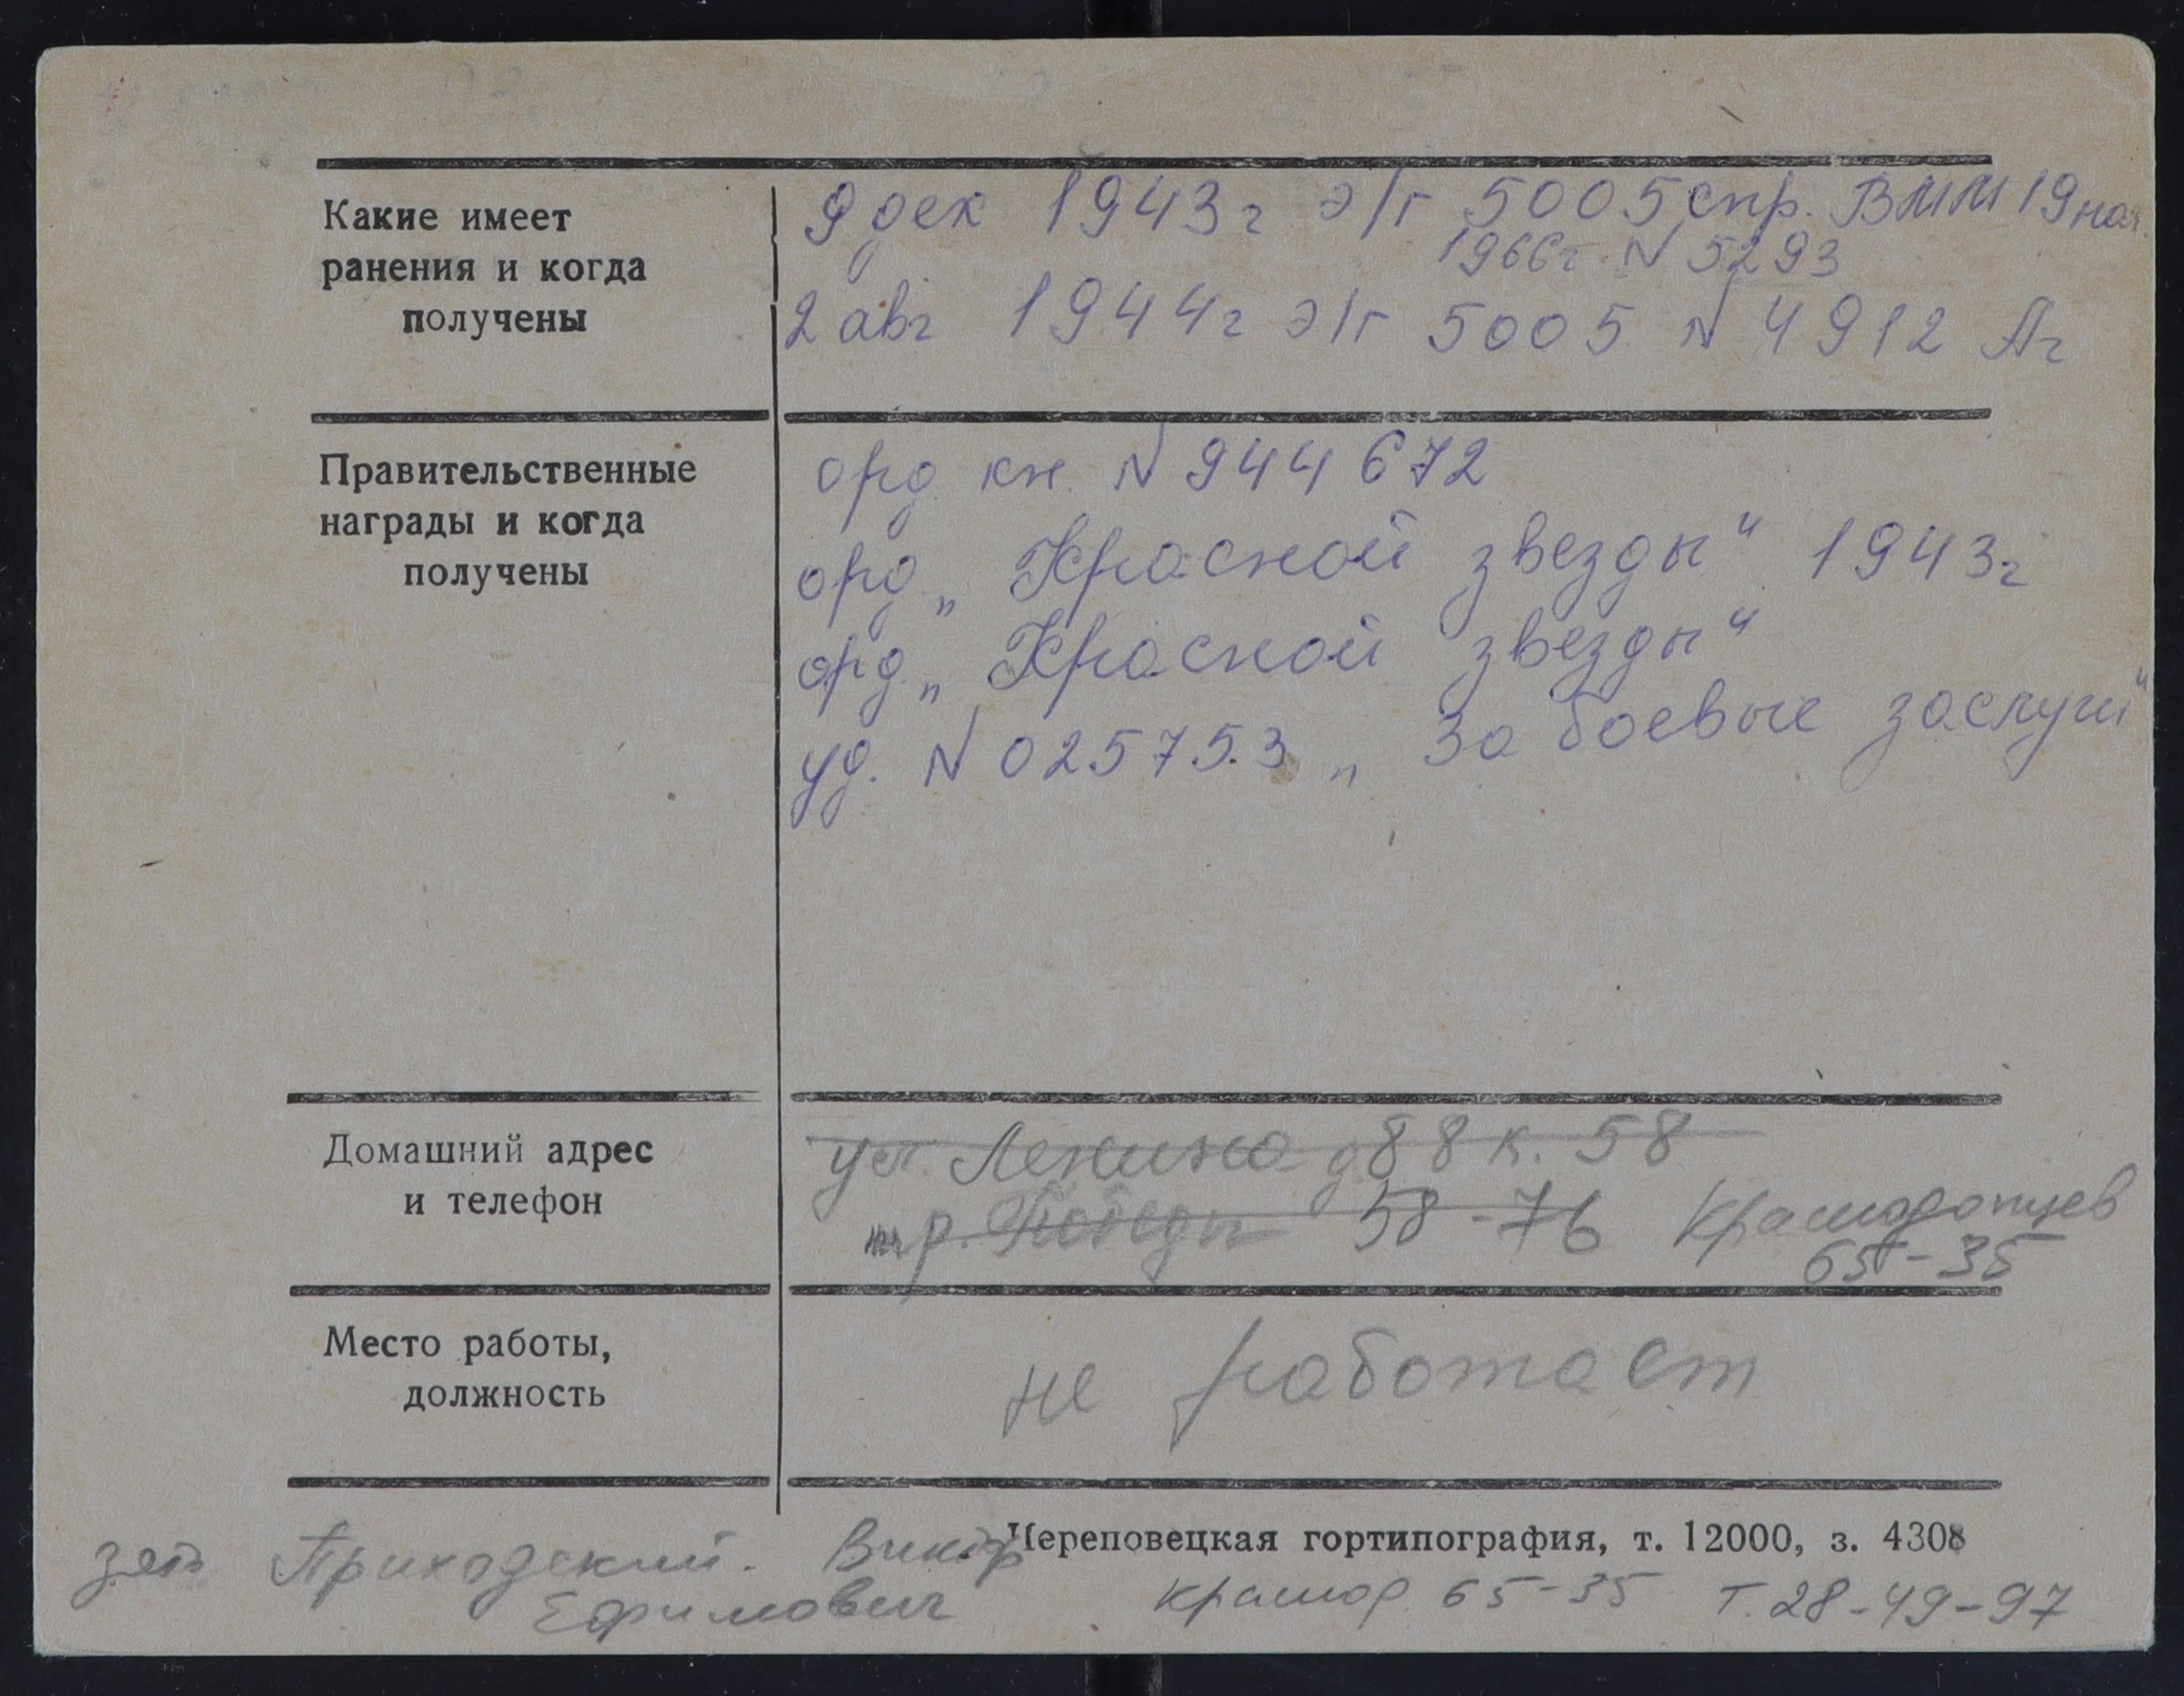 Какие имеет
ранения и когда
получены
9 дек 1943г э/г 5005 спр. ВММ 19 ноя.
1966г. N 5293
2 авг 1944г э/г 5005 N 4912
Правительственные
награды и когда
получены
орд. кн. N 944672
орд „Красной звезды“ 1943г
орд „Красной звезды“
уд. N 025753 „За боевые заслуги“
Домашний адрес
и телефон
ул. Ленина д 88 к. 58
пр. Победы 58-76 Краснодонцев
65-35
Место работы,
должность
не работает
Череповецкая гортипография, т. 12000, з. 4308
зять Приходский. Виктор
Ефимович
65-35 Т. 28-49-97